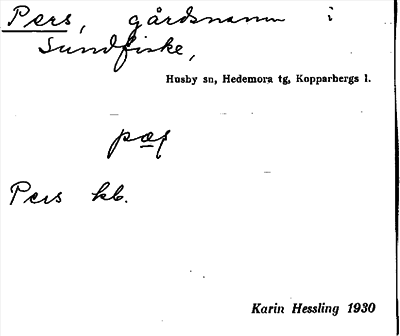 Pers, gårdsnamn i
Sundfiske,
Husby sn, Hedemora tg, Kopparbergs l.
pæs
Pers kb.
Karin Hessling 1930